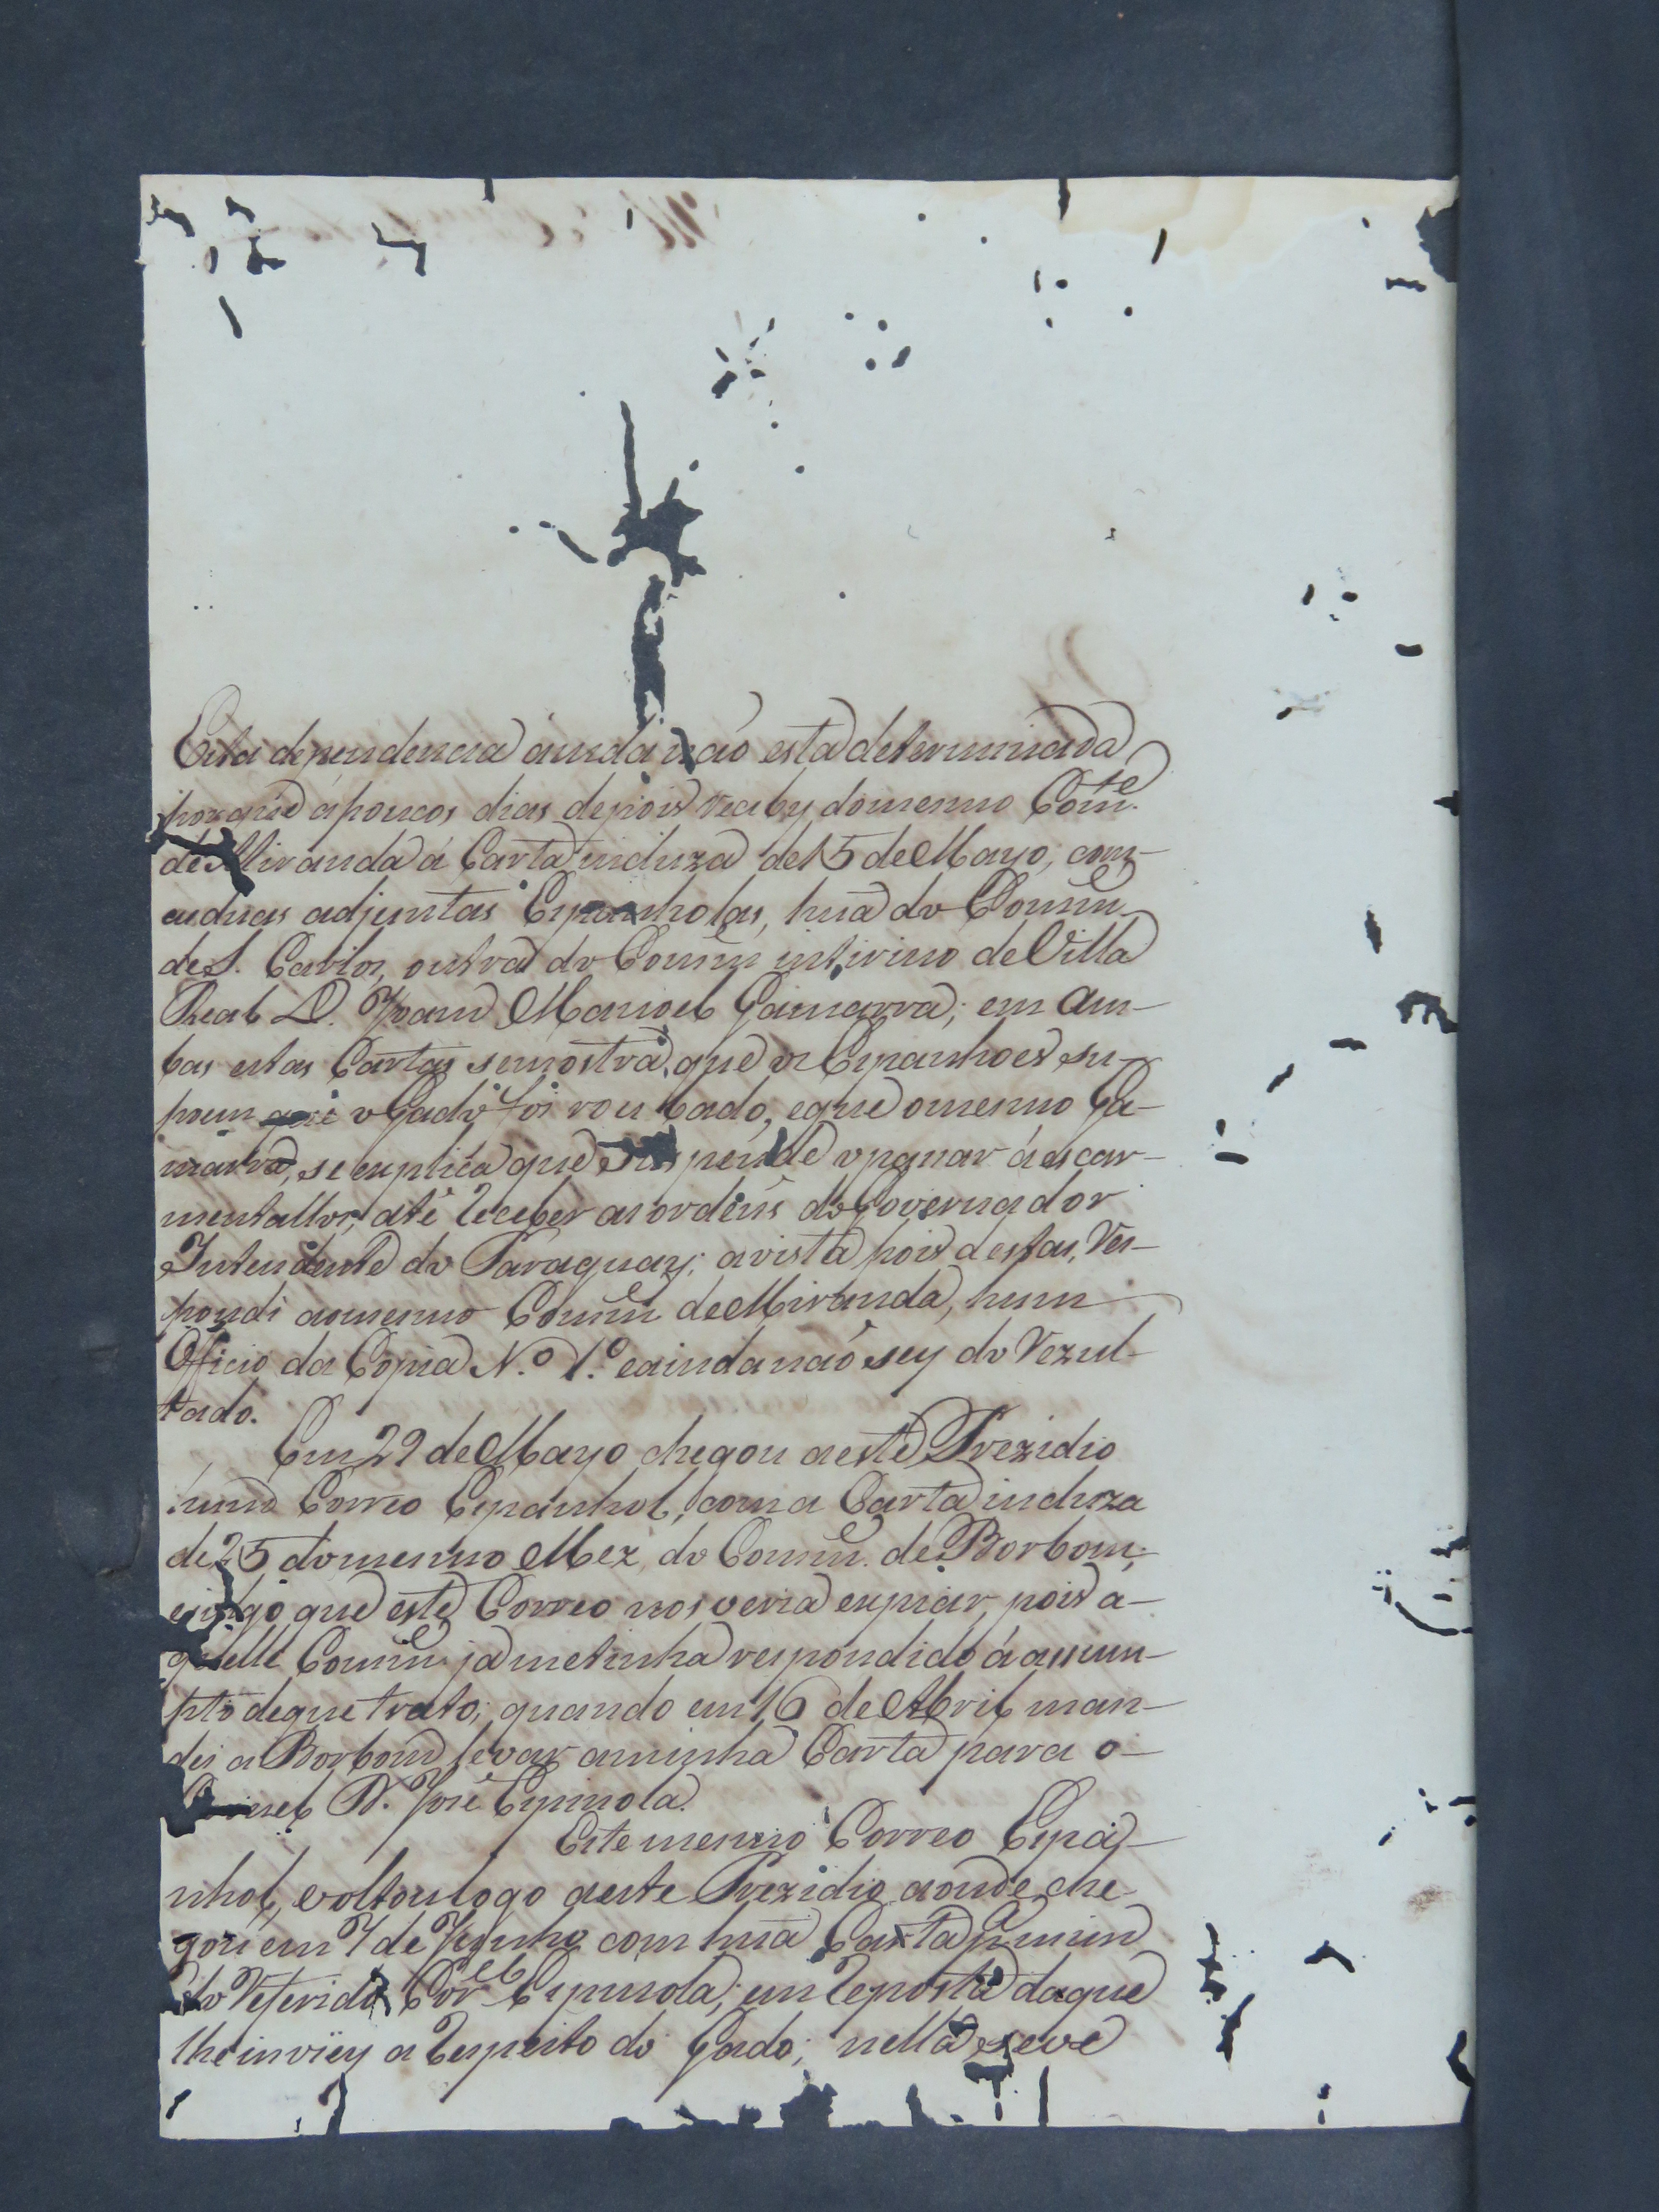 Esta dependencia ainda não está determinada
porque a poucos dias depois receby do mesmo Com.te
de Miranda a Carta incluza de 15 de Mayo, com
as duas adjuntas Espanholas, huã do Comm.e
de S. Carlos, outra do Comm.e intirino de Villa
Real D. Joam Manoel Gamarra; em am-
bas estas Cartas se mostra, que os Espanhoes su-
poem que o Gado foi roubado, e que o mesmo Ga-
marra, se explica que suspende o passar á escar-
mentallos, até receber as ordens do Governador
Intendente do Paraguay; a vista pois destas, res-
pondi ao mesmo Comm.e de Miranda, hum
Officio da Copia N.o 1.o e ainda não sey do rezul-
tado.
Em 29 de Mayo chegou a este Prezidio
hum Correo Espanhol, com a Carta incluza
de 25 do mesmo Mez, do Comm.e de Borbom;
e julgo que este Correo nos veria espiar, pois a-
quelle Comm.e ja me tinha respondido á assum-
pto de que trato; quando em 16 de Abril man-
dei a Borbom levar a minha Carta para o
Coronel D. José Espinola.
Este mesmo Correo Espa-
nhol, voltou logo a este Prezidio aonde che-
gou em 7 de Junho com huã Carta p.a mim
do referido Cor.el Espinola, em reposta da que
lhe inviey a respeito do Gado; nella se vê